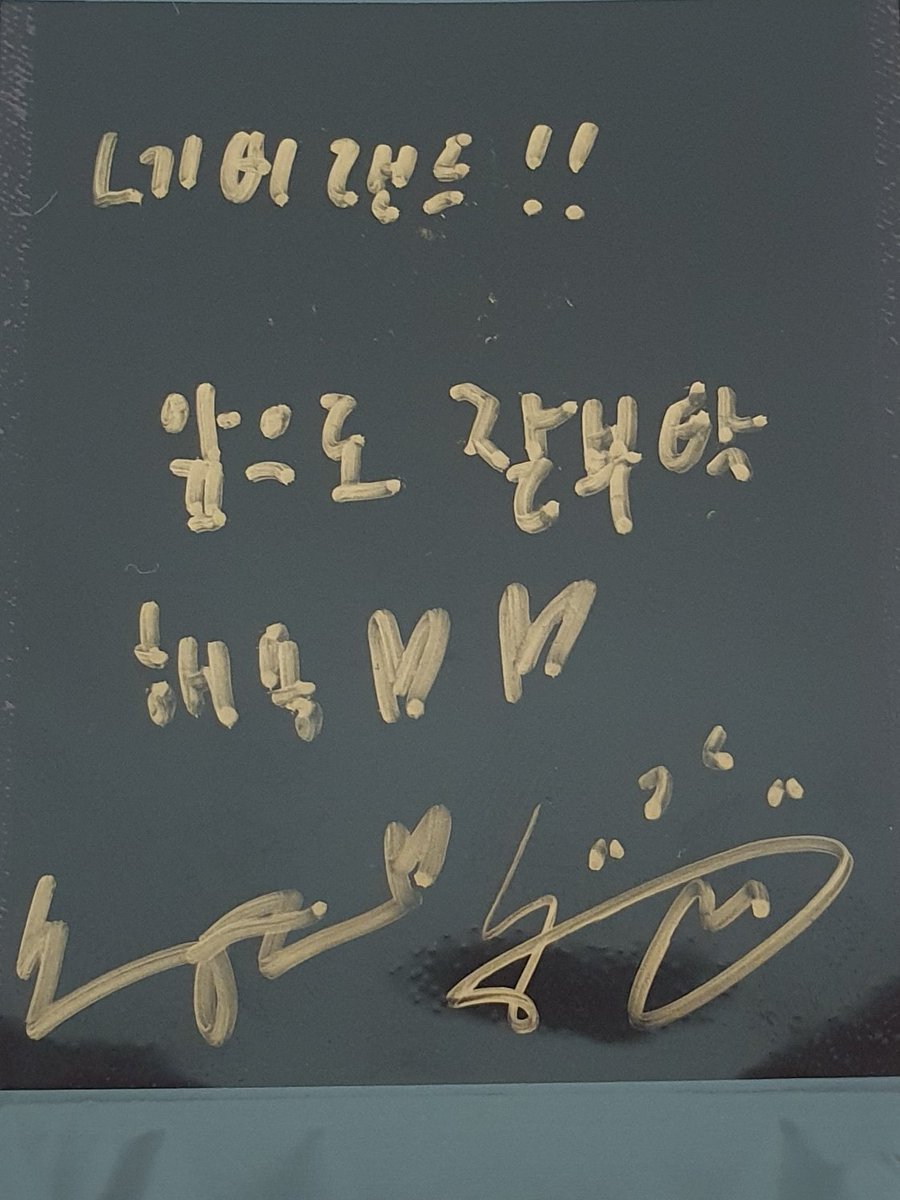 네버랜드 !!
앞으로 잘부탁
해용 ♡♡